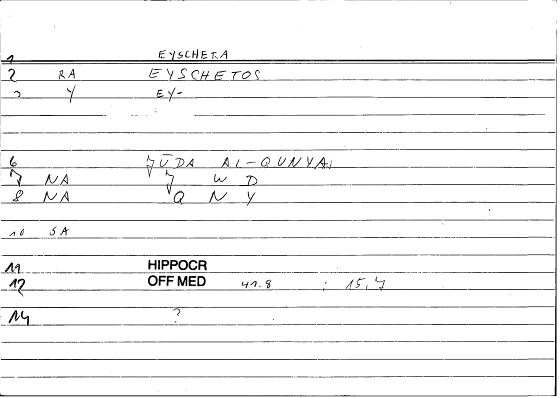 1 EYSCHERA
2 RA EYSCHETOS
3 Y EY-
6 ǦŪDA AL-QUNYAI
7 NA Ǧ W D
8 NA Q N Y
10 SA
11 HIPPOCR
12 OFF MED 41.8 : 15,7
14 ?